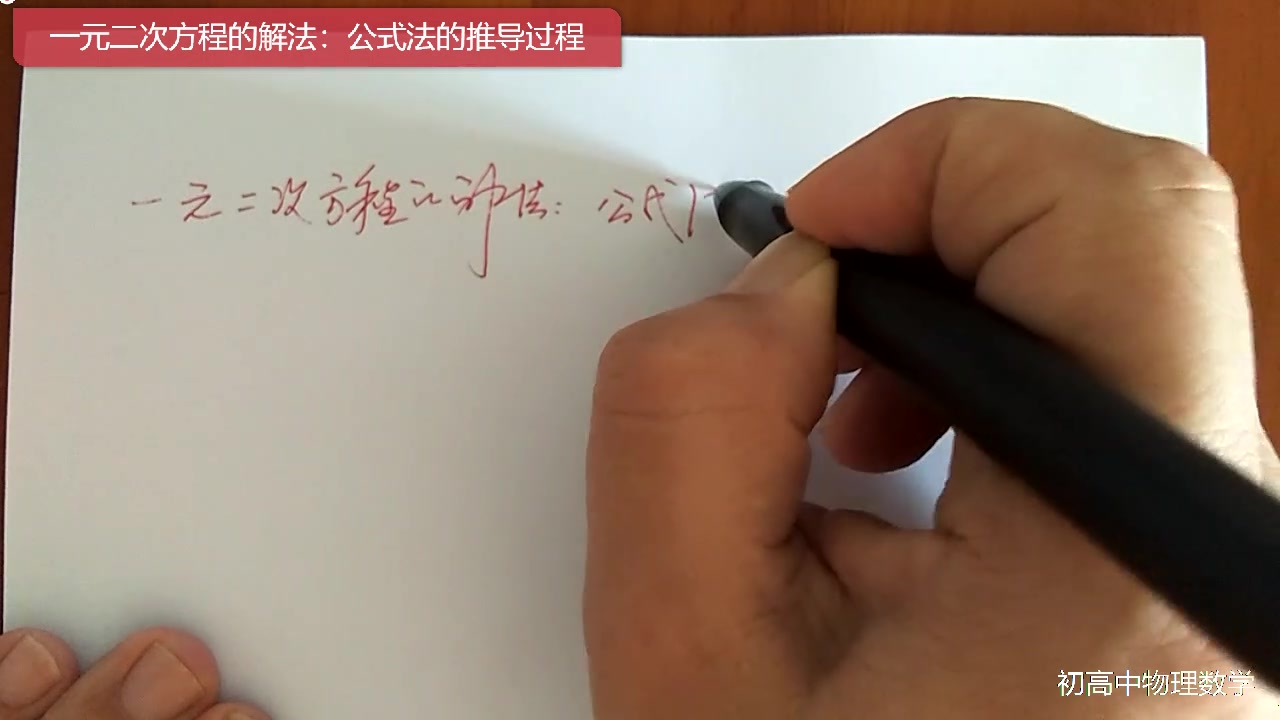 一元二次方程的解法：公式法的推导过程
一元二次方程的解法：公式
初高中物理数学